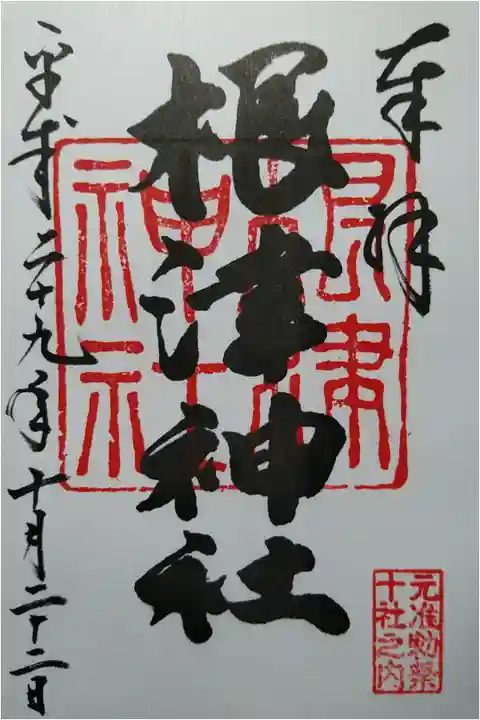 奉拝
根津神社
平成二十九年十月二十二日
根津
神社
元准勅祭
十社之内